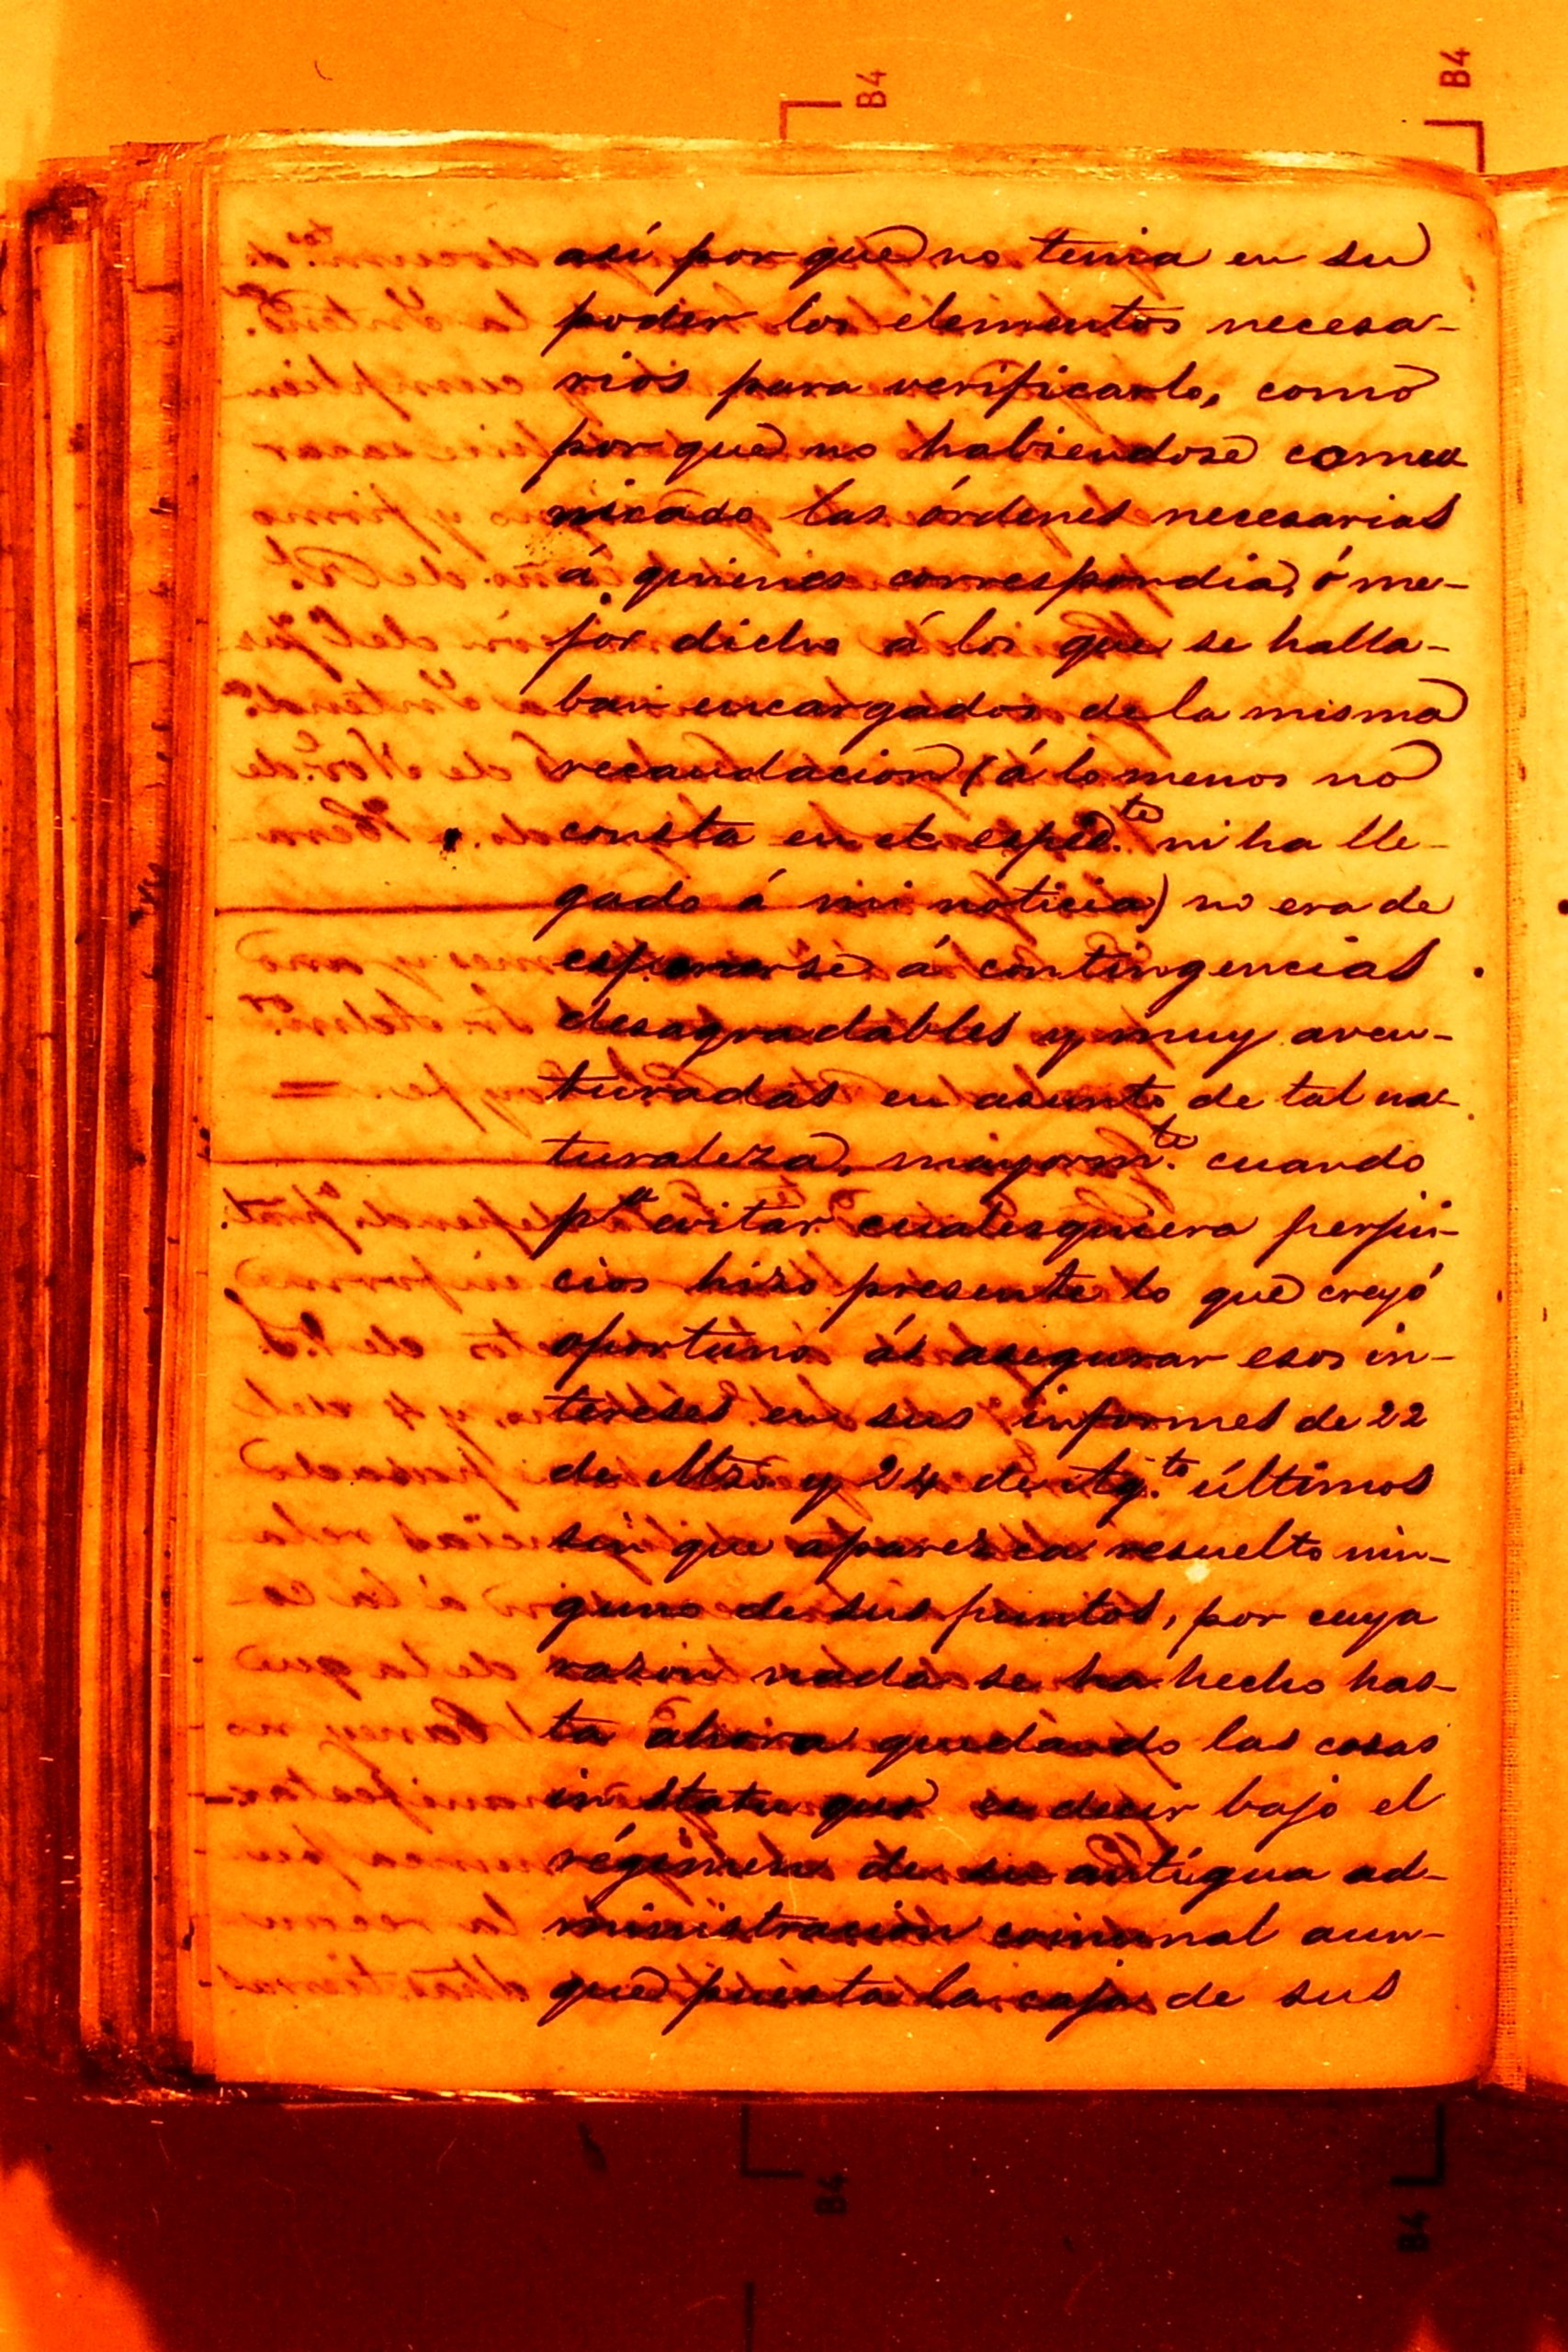 B4
B4
así por que no tenia en su
poder los elementos necesa-
rios para verificarlo, como
por que no habiendose comu
nicado las órdenes necesarias
á quienes correspondia, ó me-
jor dicho á los que se halla-
ban encargados de la misma
recaudacion (á lo menos no
consta en el esped.te ni ha lle-
gado á mi noticia) no era de
esponerse á contingencias
desagradables y muy aven-
turadas en asunto de tal na-
turaleza, mayorm.te cuando
pa evitar cualesquiera perjui-
cios hizo presente lo que creyó
oportuno á asegurar esos in-
tereses en sus informes de 22
de Mzo y 24 de Ag.to últimos
sin que aparezca resuelto nin-
guno de sus puntos, por cuya
razon nada se ha hecho has-
ta ahora quedando las cosas
in statu quo es decir bajo el
régimen de su antígua ad-
ministracion comunal aun-
que puesta la caja de sus
B4
B4